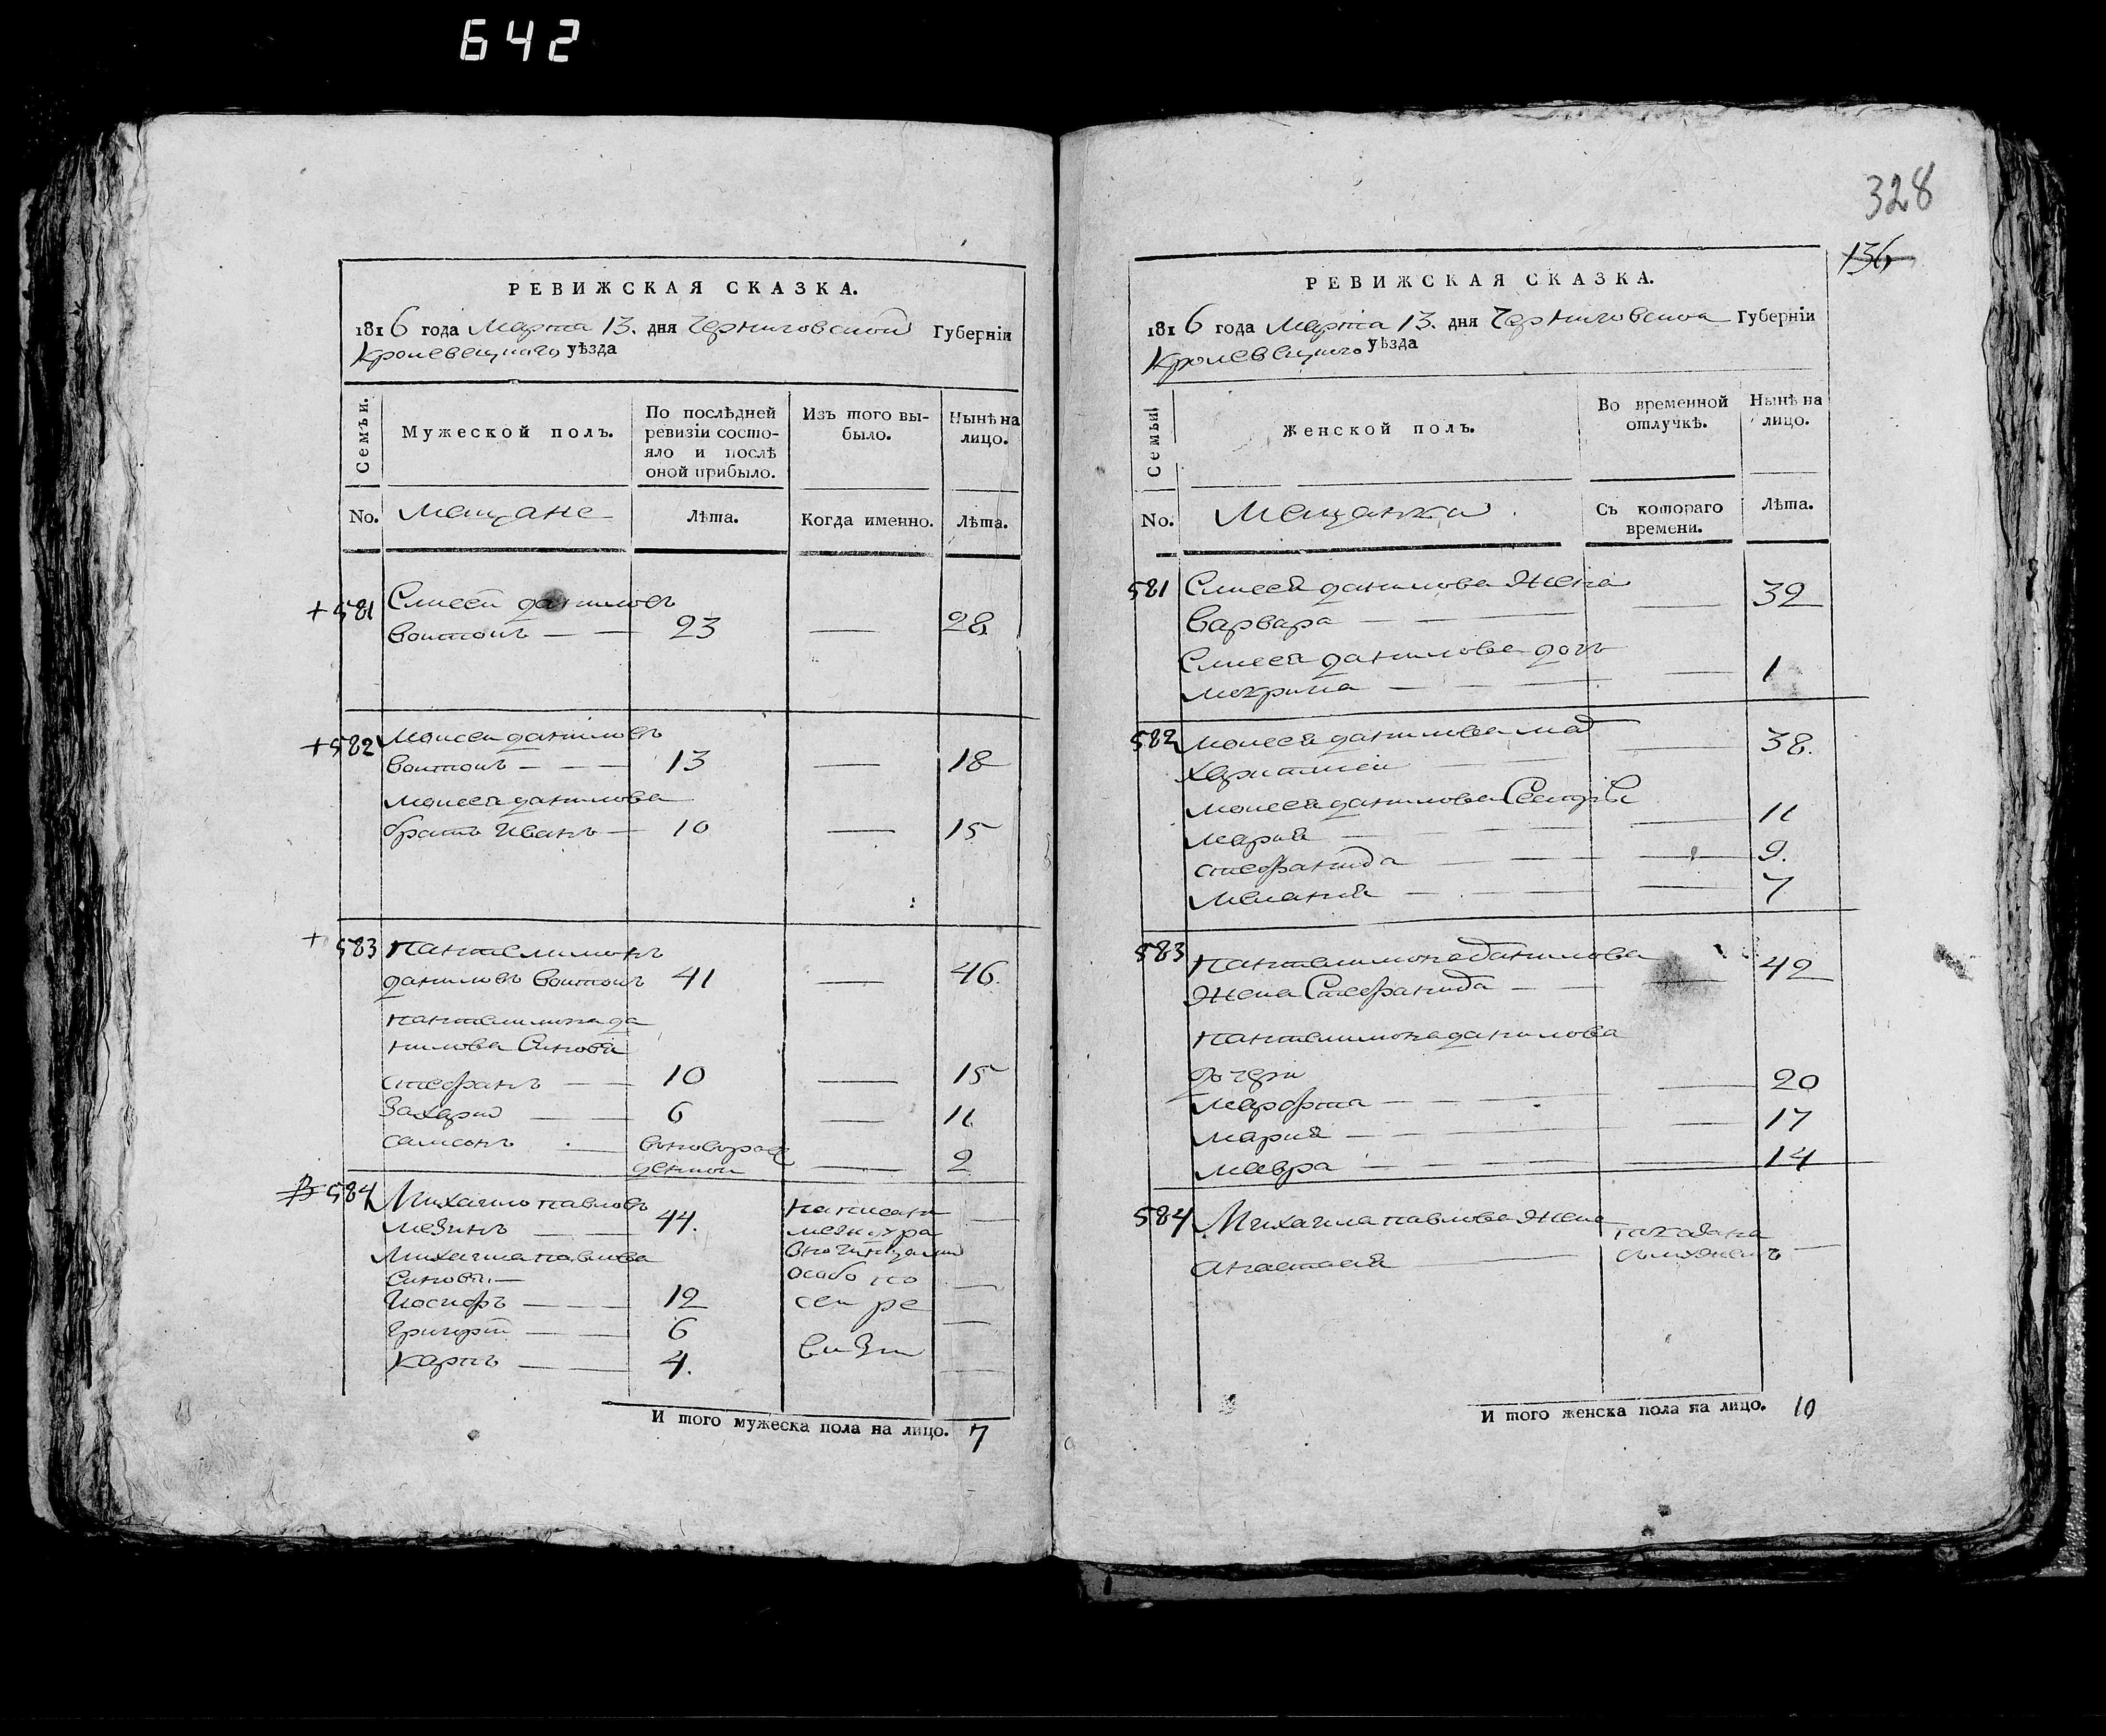 642
РЕВИЖСКАЯ СКАЗКА.
1816 года Марта 13. дня Черниговской Губерніи
Кролевецкого уѣзда
Семьи.
Мужеской полъ.
По послѣдней ревизіи состояло и послѣ оной прибыло.
Изъ того выбыло.
Нынѣ на лицо.
No. Мещане Лѣта. Когда именно. Лѣта.
+ 581 данилов
23 — 28
+ 582 Моисей данилов
13 — 18
Моисея данилова
братъ Иванъ — 10 — 15
+ 583 Пантелимонъ
даниловъ 41 — 46.
Пантелимона да
нилова Синовя
Стефанъ — 10 — 15
Захарий — 6 — 11
Самсонъ — 2
584 Михаило павловъ
44. написан
Михаила павлова
Синовя — особо по
Иосифъ — 12 — сей ре
Григорий — 6 —
Карпъ — 4. визи —
И того мужеска пола на лицо. 7
328
136
РЕВИЖСКАЯ СКАЗКА.
1816 года Марта 13. дня Черниговской Губерніи
Кролевецкого уѣзда
Семьи
Женской полъ.
Во временной отлучкѣ.
Нынѣ на лицо.
No. Мещанки Съ котораго времени. Лѣта.
581 данилова Жена
Варвара — 32
данилова дочь
Мокрина — 1
582 Моисея данилова мат
38.
Моисея данилова Сестры
Мария — 11
Стефанида — 9.
Мелания — 7
583 Пантелимона данилова
Жена Стефанида — 42
Пантелимона данилова
дочери
Марфта — 20
Мария — 17
Мавра — 14
584 Михаила павлова Жена
Анастасия — показана
с мужемъ —
И того женска пола на лицо. 10